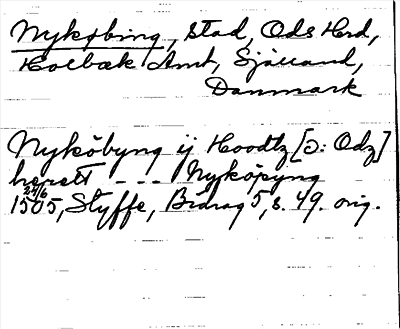 Nykøbing, stad, Ods Herd,
Holbæk Amt, Sjælland,
Danmark
Nyköbyng ij Hoodtz [ɔ: Odz]
herett - - - Nyköpyng
24/6
1505, Styffe, Bidrag 5, s. 49. orig.